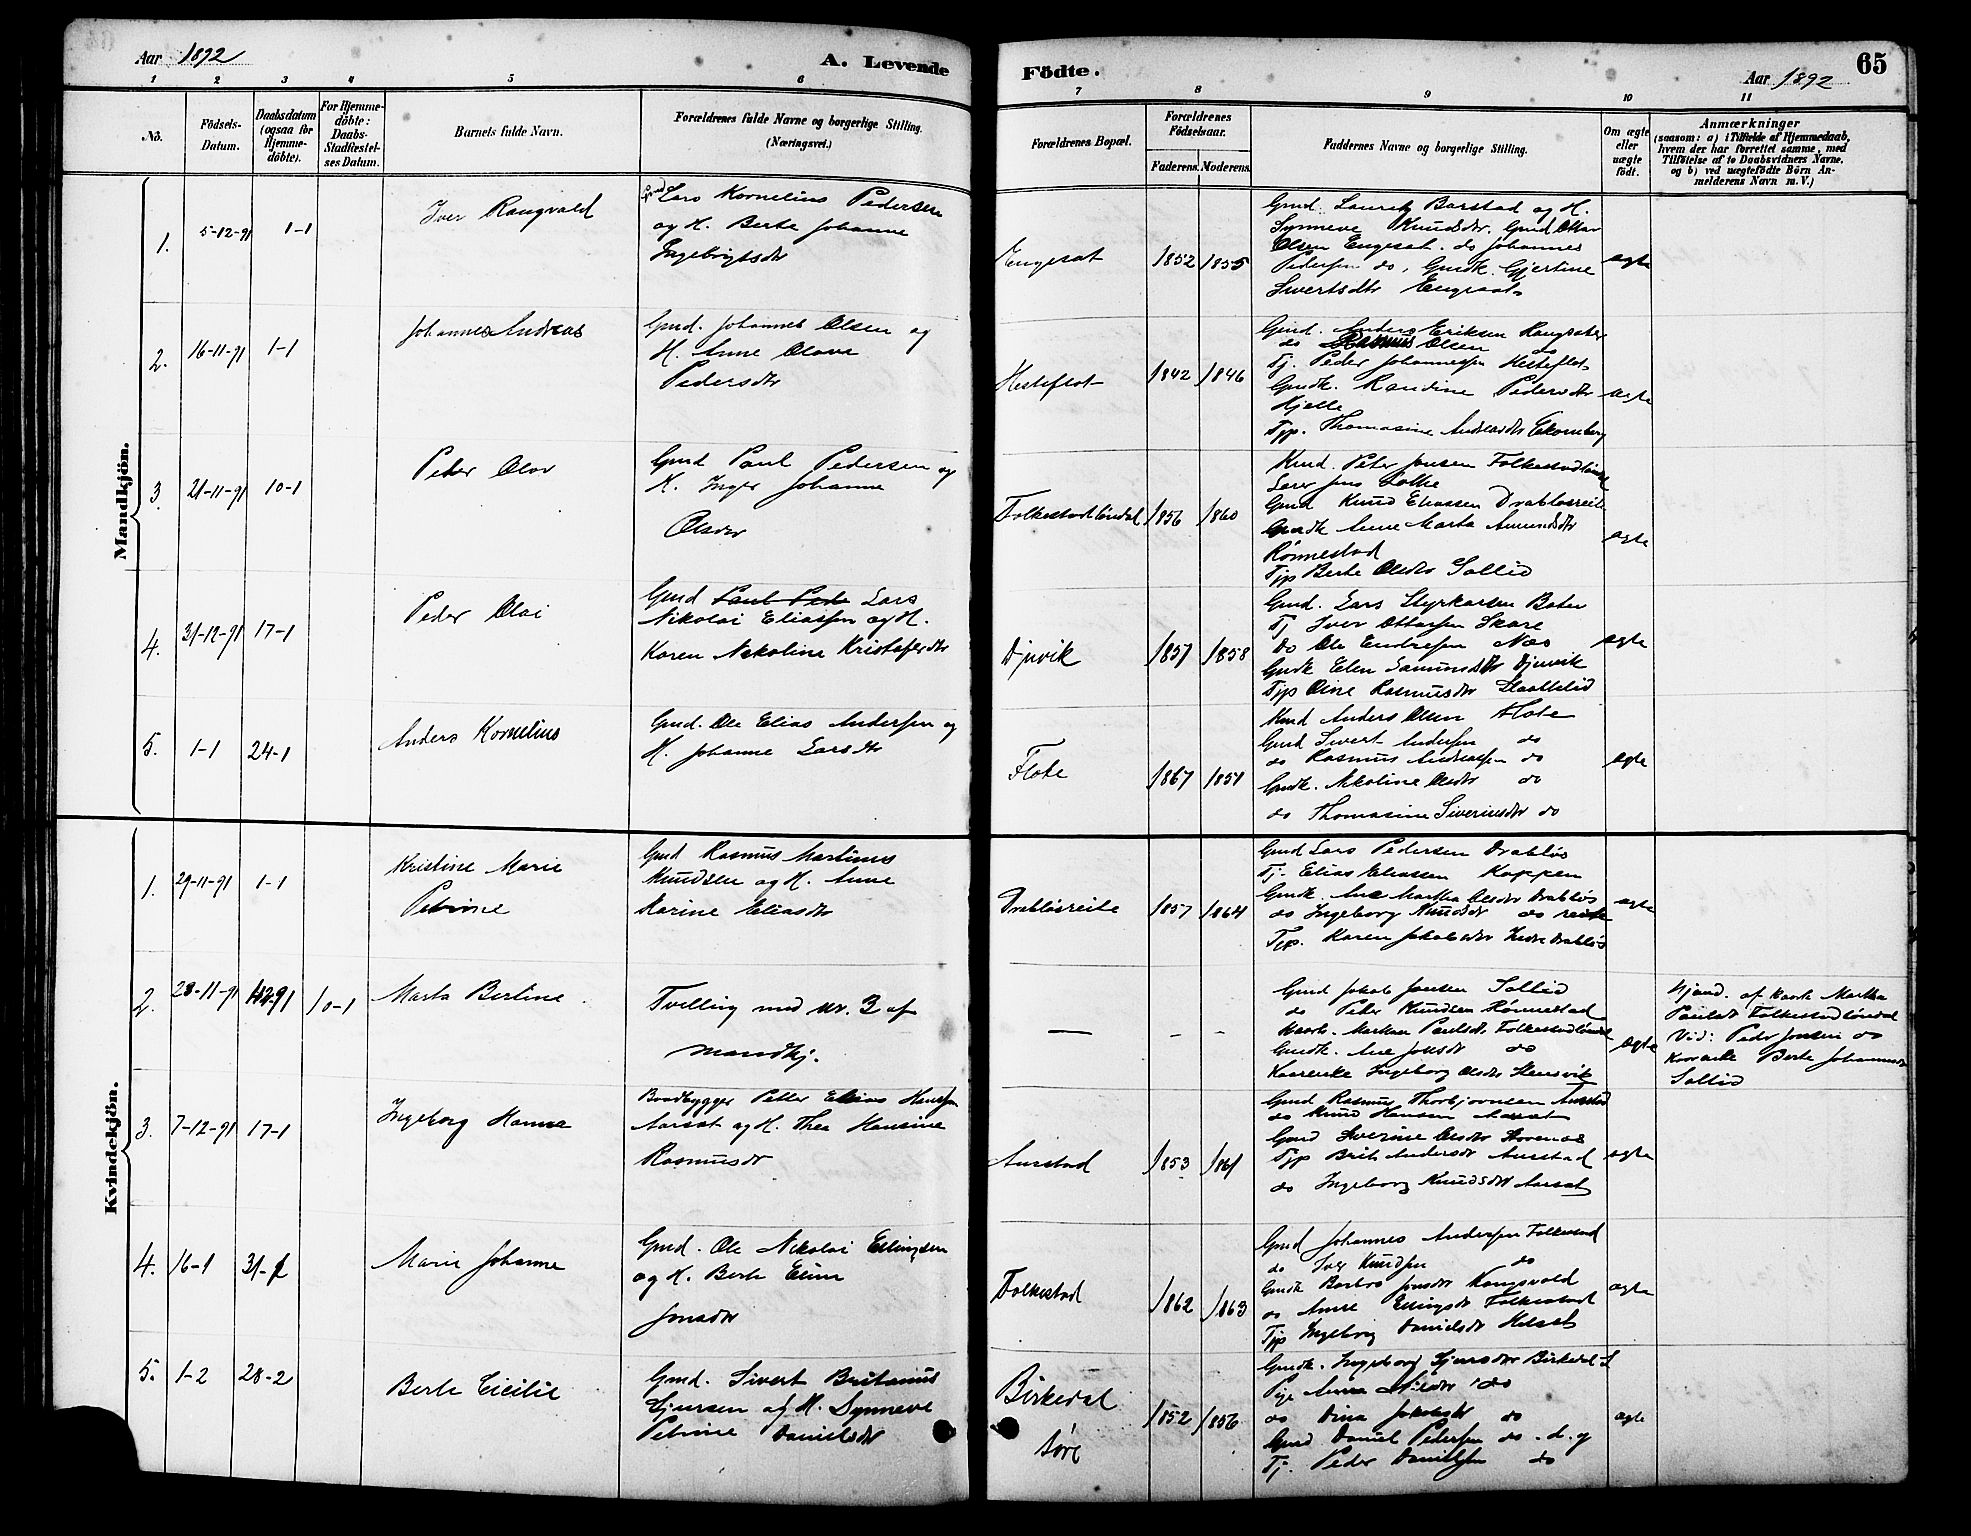 Aar 1892
A. Levende
Födte.
Aar 1892
65
1 2 3 4 5 6 7 8 9 10 11
No.
Födsels-
Datum.
Daabsdatum
(ogsaa for
Hjemme-
döbte).
For Hjemme-
döbte:
Daabs-
Stadfæstel-
ses Datum.
Barnets fulde Navn.
Forældrenes fulde Navne og borgerlige Stilling.
(Næringsvei.)
Forældrenes Bopæl.
Forældrenes
Födselsaar.
Faderens. Moderens.
Faddernes Navne og borgerlige Stilling.
Om ægte
eller
uægte
födt.
Anmærkninger
(saasom: a) i Tilfælde af Hjemmedaab,
hvem der har forrettet samme, med
Tilföielse af to Daabsvidners Navne,
og b) ved uægtefödte Börn An-
melderens Navn m. V.)
Mandkjön.
1. 5-12-91 1-1
Iver Rangvald
Gmd Lars Kornelius Pedersen
og H. Berte Johanne
Ingebrigtsdtr
Engeset 1852 1855
Gmd. Lauritz Barstad og H.
Synneve Knudsdtr. Gmd. Ottar
Olsen Engeset. do Johannes
Pedersen do, Gmdk. Gjertine
Sivertsdtr Engeset
ægte
2. 16-11-91 1-1
Johannes Andreas
Gmd. Johannes Olsen og
H. Anne Olave
Pedersdtr
Hesteflot 1842 1846
Gmd. Anders Eriksen
do Rasmus Olsen do
Tj. Peder Johannessen Hesteflot
Gmdk. Randine Pedersdtr
Hjelle
Tjp. Thomasine Andreasdtr Ekornberg
ægte
3. 21-11-91 10-1
Peter Olav
Gmd Paul Pedersen og
H. Inger Johanne
Olsdtr
Folkestadlöndal 1856 1860
Kmd. Peter Jonsen Folkestadlöndal
Lærer Jens
Gmd Knud Eliassen Drablosreite
Gmdk Anne Marta Amundsdtr
Rönnestad
Tjp Berte Olsdtr Sollid
ægte
4. 31-12-91 17-1
Peder Olai
Gmd Paul Pede Lars
Nikolai Eliassen og H.
Karen Nikoline Kristofersdtr
Djuvik 1857 1858
Gmd. Lars Styrkarsen
Tj Iver Ottarsen Skare
do Ole Endresen Næs
Gmdk Elen Samundsdtr Djuvik
Tjp Oline Rasmusdtr
ægte
5. 1-1 24-1
Anders Kornelius
Gmd. Ole Elias Andersen og
H. Johanne Larsdtr
Flote 1867 1851
Kmd Anders Olsen Flote
Gmd Sivert Andersen do
do Rasmus Andreassen do
Gmdk. Nikoline Olsdtr do
do Thomasine Siverinsdtr do
ægte
Kvindekjön.
1. 29-11-91 1-1
Kristine Marie
Petrine
Gmd Rasmus Martinus
Knudsen og H. Anne
Karine Eliasdtr
Drablösreite 1857 1864
Gmd Lars Pedersen Drablös
Tj. Elias Eliassen Koppen
Gmdk. Ane Martha Olsdtr Drablös
do Ingeborg Knudsdtr do reite
Tjp. Karen Jakobsdtr Indre Drablös
ægte
2. 28-11-91 10-1
Marta Bertine
Tvilling med Nr. 3 af
Mandkj.
— - -
Gmd Jakob Jonsen Sollid
do Peter Knudsen Rönnestad
Martha Paulsdtr Folkestadlöndal
Gmdk. Ane Jonsdtr do
Kaarenke Ingeborg Olsdtr Stensvik
ægte
Hjemd. af Martha
Paulsdtr Folkestadlöndal
Vid: Peder Jonsen do
Berte Johannesdtr
Sollid
3. 7-12-91 17-1
Ingeborg Hanne
Baadbygger Petter Elias Hansen
Aarset og H. Thea Hansine
Rasmusdtr
Aurstad 1853 1861
Gmd Rasmus Thorbjornsen Aurstad
do Knud Hansen Aarset
Gmd Siverine Olsdtr
Tjp Brit Andersdtr Aurstad
do Ingeborg Knudsdtr Aarset
ægte
4. 16-1 31-1
Marie Johanne
Gmd. Ole Nikolai Ellingsen
og H. Berte Eline
Jonsdtr
Folkestad 1862 1863
Gmd Johannes Andersen Folkestad
do Iver Knudsen do
Gmdk Barbro Jonsdtr Kongsvold
do Anne Ellingsdtr Folkestad
Tjp Ingeborg Danielsdtr Helset
ægte
5. 1-2 28-2
Berte Cicilie
Gmd. Sivert Britanus
Sjursen og H. Synneve
Petrine Danielsdtr
Birkedal
söre
1852 1856
Gmdk. Ingeborg Sjursdtr Birkedal S
Pige Anna Nilsdtr do
do Dina Jakobsdtr do
Gmd Daniel Pedersen do. d. y
Tj. Peder Danielsen do
ægte